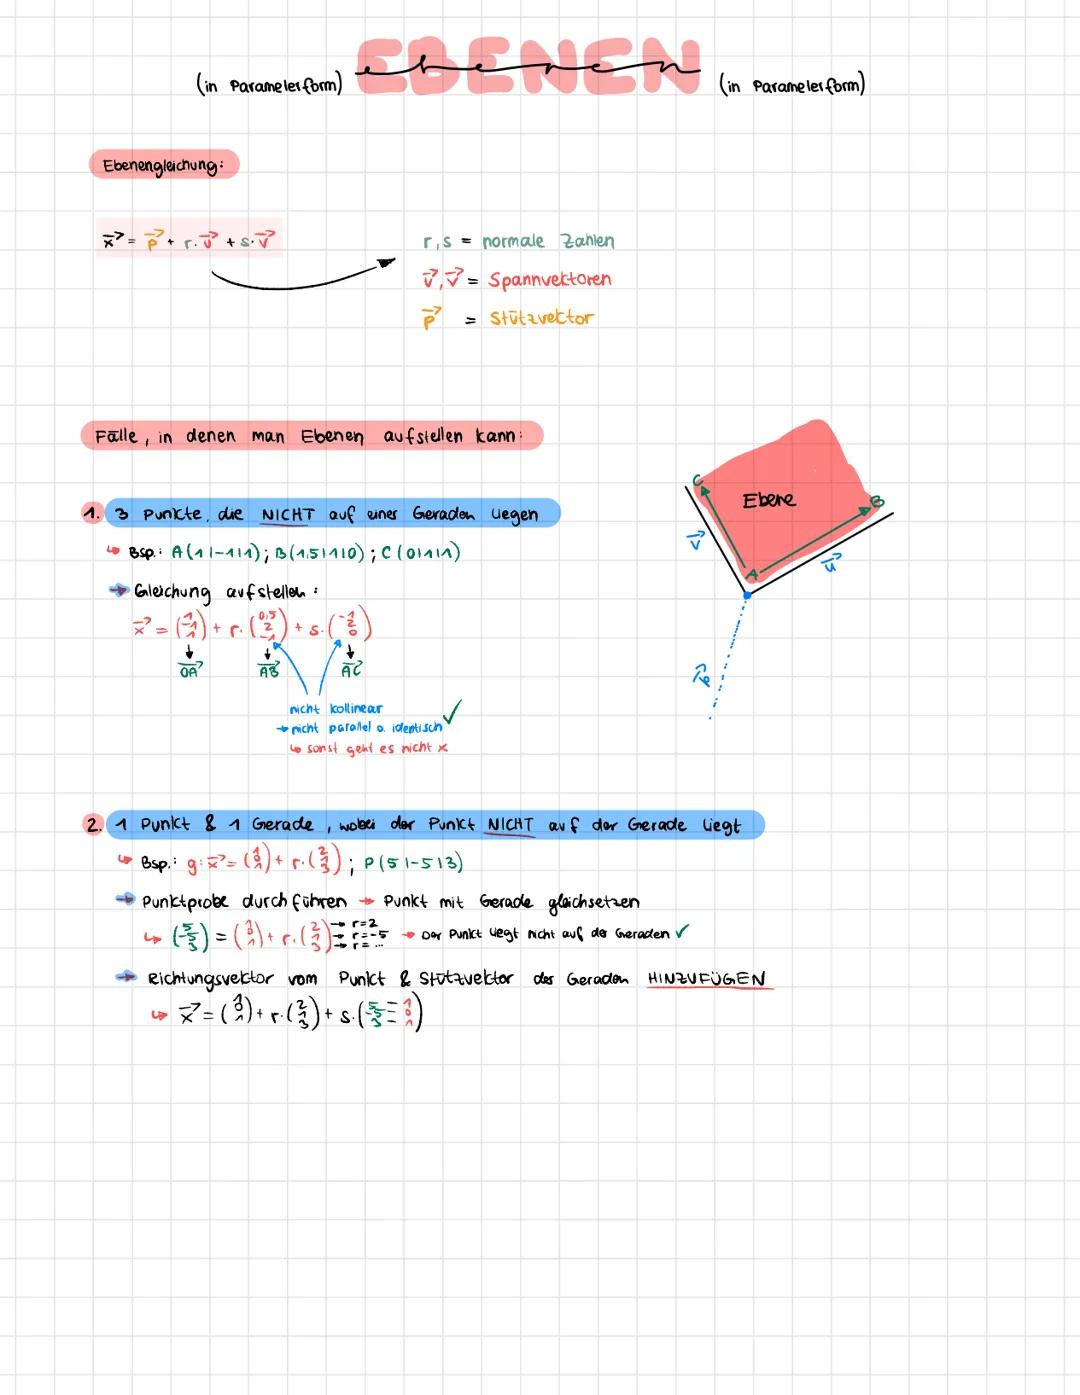 EBENEN
ebenen
(in Parameterform)
(in Parameterform)
Ebenengleichung:
x⃗ = p⃗ + r·u⃗ + s·v⃗
r,s = normale Zahlen
u⃗,v⃗ = Spannvektoren
p⃗ = Stützvektor
Fälle, in denen man Ebenen aufstellen kann:
1. 3 Punkte, die NICHT auf einer Geraden liegen
↳ Bsp.: A(1|-1|1); B(1,5|1|0); C(0|1|1)
→ Gleichung aufstellen:
x⃗ = (1 -1 1) + r·(0,5 2 -1) + s·(-1 2 0)
OA⃗ AB⃗ AC⃗
nicht kollinear
→ nicht parallel o. identisch ✓
↳ sonst geht es nicht x
C
B
Ebene
A
v⃗
u⃗
p⃗
2. 1 Punkt & 1 Gerade, wobei der Punkt NICHT auf der Gerade liegt
↳ Bsp.: g: x⃗ = (1 0 1) + r·(2 1 3); P(5|-5|3)
→ Punktprobe durchführen → Punkt mit Gerade gleichsetzen
↳ (5 -5 3) = (1 0 1) + r·(2 1 3) → r=2 → r=-5 → r=... → Der Punkt liegt nicht auf der Geraden ✓
→ Richtungsvektor vom Punkt & Stützvektor der Geraden HINZUFÜGEN
↳ x⃗ = (1 0 1) + r·(2 1 3) + s·(5-1 -5-0 3-1)